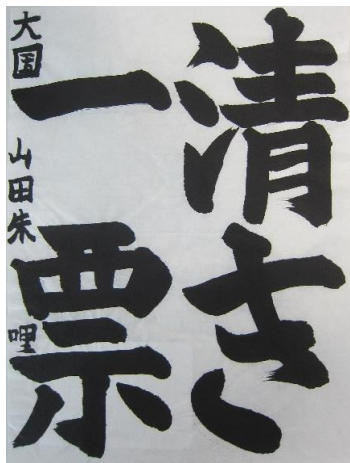 清き
一票
大国 山田朱哩